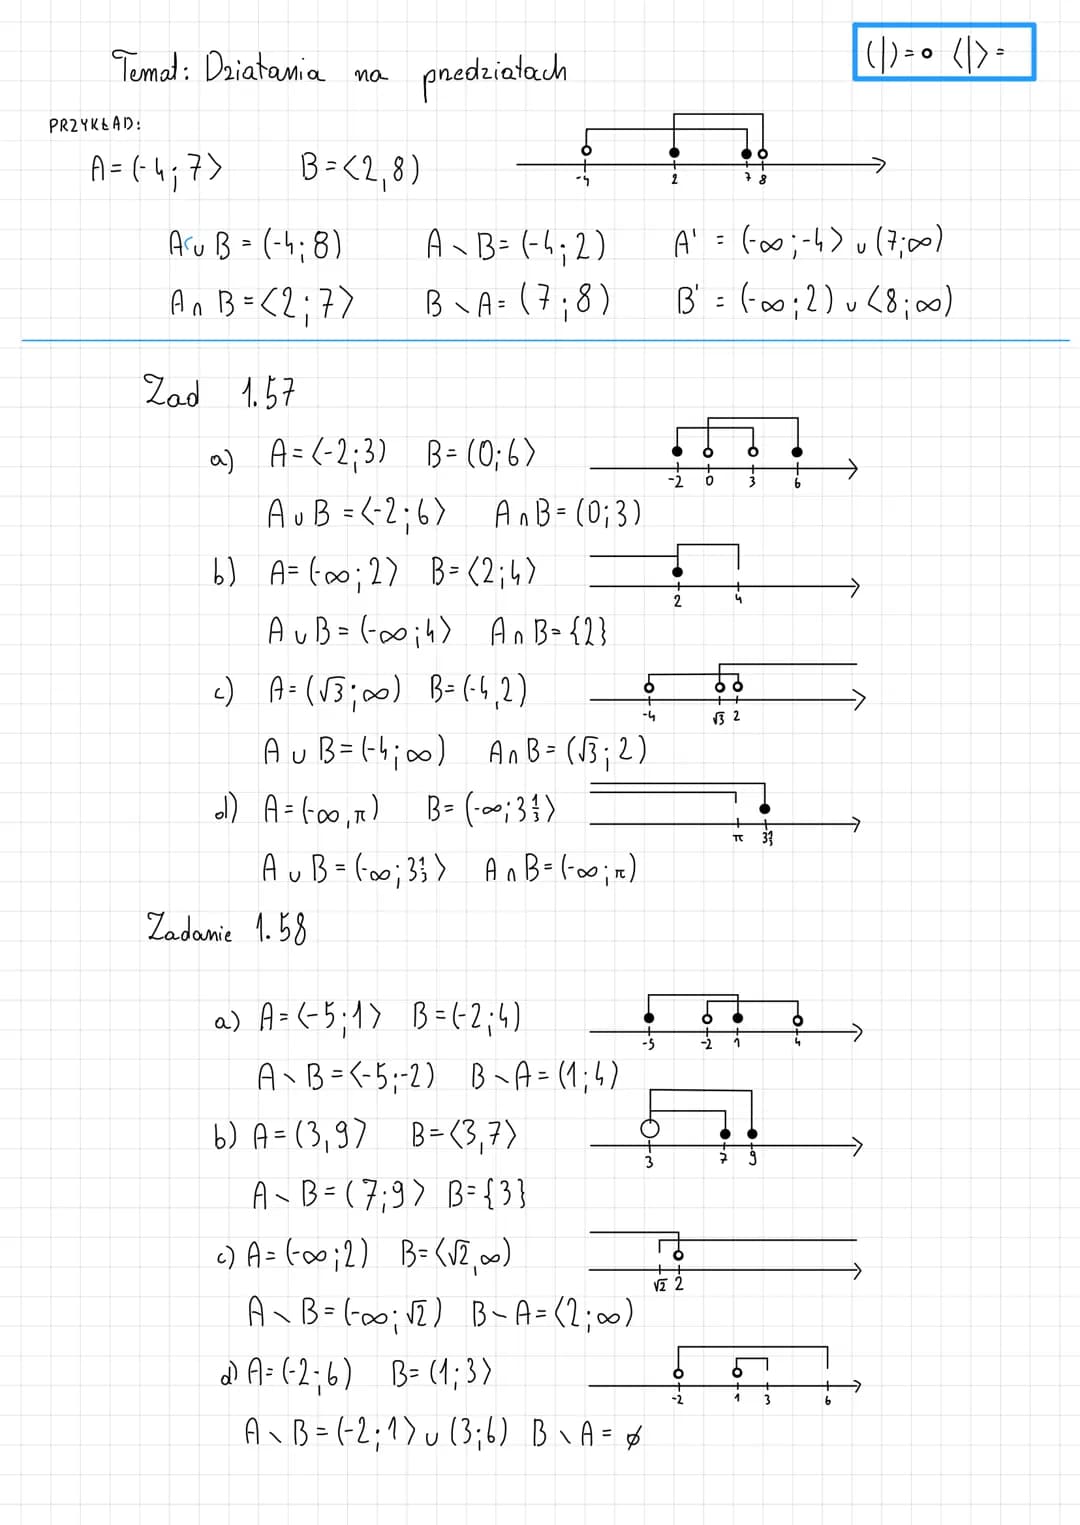 Temat: Działania na przedziałach
(|)=o ⟨|⟩=
PRZYKŁAD:
A=(-4;7⟩ B=⟨2,8)
-4 2 7 8
A∪B=(-4;8) A∖B=(-4;2) A'=(-∞;-4⟩∪(7;∞)
A∩B=⟨2;7⟩ B∖A=(7;8) B'=(-∞;2)∪⟨8;∞)
Zad 1.57
a) A=⟨-2;3) B=(0;6⟩
-2 0 3 6
A∪B=⟨-2;6⟩ A∩B=(0;3)
b) A=(-∞;2⟩ B=⟨2;4⟩
2 4
A∪B=(-∞;4⟩ A∩B={2}
c) A=(√3;∞) B=(-4,2)
-4 √3 2
A∪B=(-4;∞) A∩B=(√3;2)
d) A=(-∞,π) B=(-∞;3⅓⟩
π 3⅓
A∪B=(-∞;3⅓⟩ A∩B=(-∞;π)
Zadanie 1.58
a) A=⟨-5;1⟩ B=(-2;4)
-5 -2 1 4
A∖B=⟨-5;-2) B∖A=(1;4)
b) A=(3,9⟩ B=⟨3,7⟩
3 7 9
A∖B=(7;9⟩ B={3}
c) A=(-∞;2) B=⟨√2,∞)
√2 2
A∖B=(-∞;√2) B∖A=⟨2;∞)
d) A=(-2;6) B=(1;3⟩
-2 1 3 6
A∖B=(-2;1⟩∪(3;6) B∖A=∅